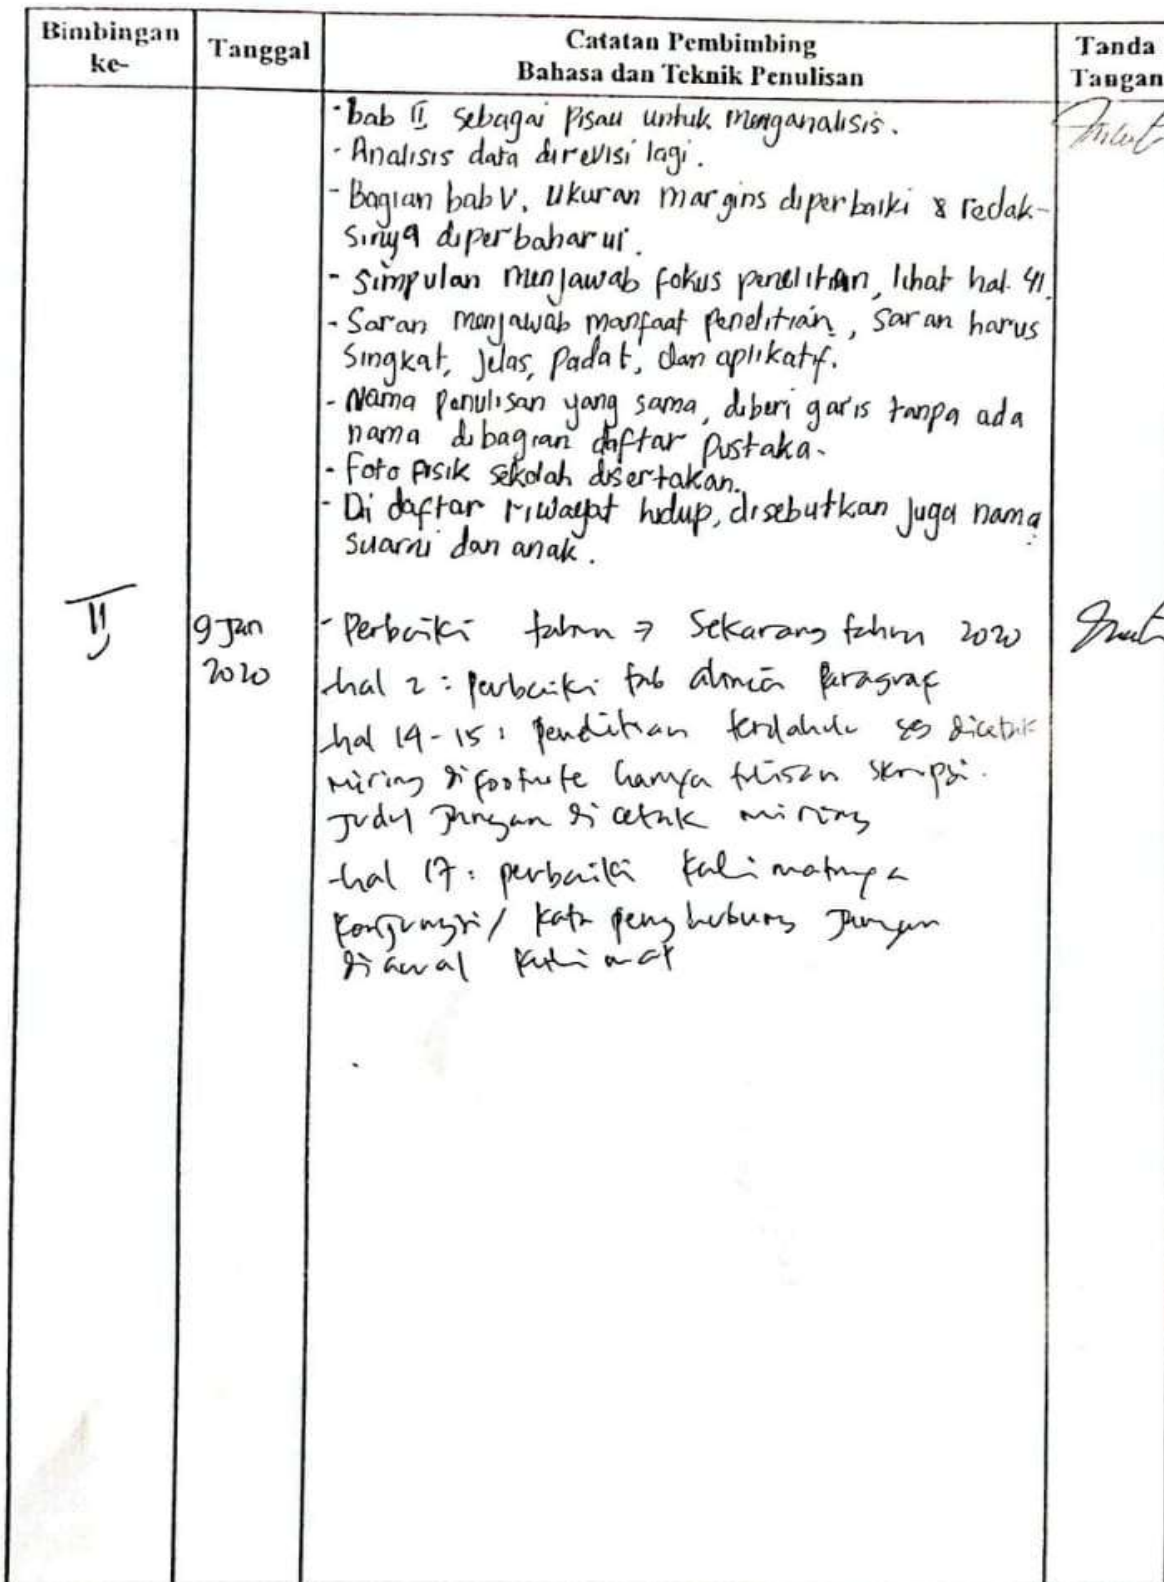 Bimbingan ke-
Tanggal
Catatan Pembimbing
Bahasa dan Teknik Penulisan
Tanda Tangan
- bab II sebagai pisau untuk menganalisis.
- Analisis data direvisi lagi.
- Bagian bab V, Ukuran margins diperbaiki & redak-
sinya diperbaharui.
- Simpulan menjawab fokus penelitian, lihat hal. 41.
- Saran menjawab manfaat penelitian, saran harus
singkat, jelas, padat, dan aplikatif.
- Nama penulisan yang sama, diberi garis tanpa ada
nama dibagian daftar pustaka.
- Foto pisik sekolah disertakan.
- Di daftar riwayat hidup, disebutkan juga nama
suami dan anak.
II
9 Jan
2020
- Perbaiki tahun → Sekarang tahun 2020
hal 2 : perbaiki tab alinea paragraf
hal 14-15 : penelitian terdahulu yg dicetak
miring di footnote hanya tulisan skripsi.
judul jangan di cetak miring
hal 17 : perbaiki kalimatnya
konjungsi / kata penghubung jangan
di awal kalimat